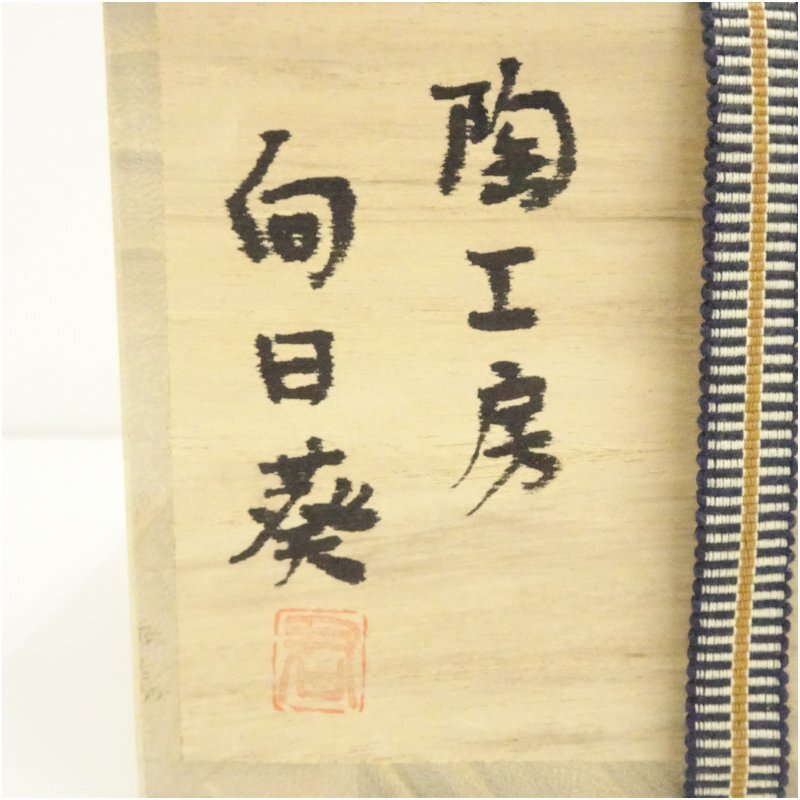 陶工房
向日葵